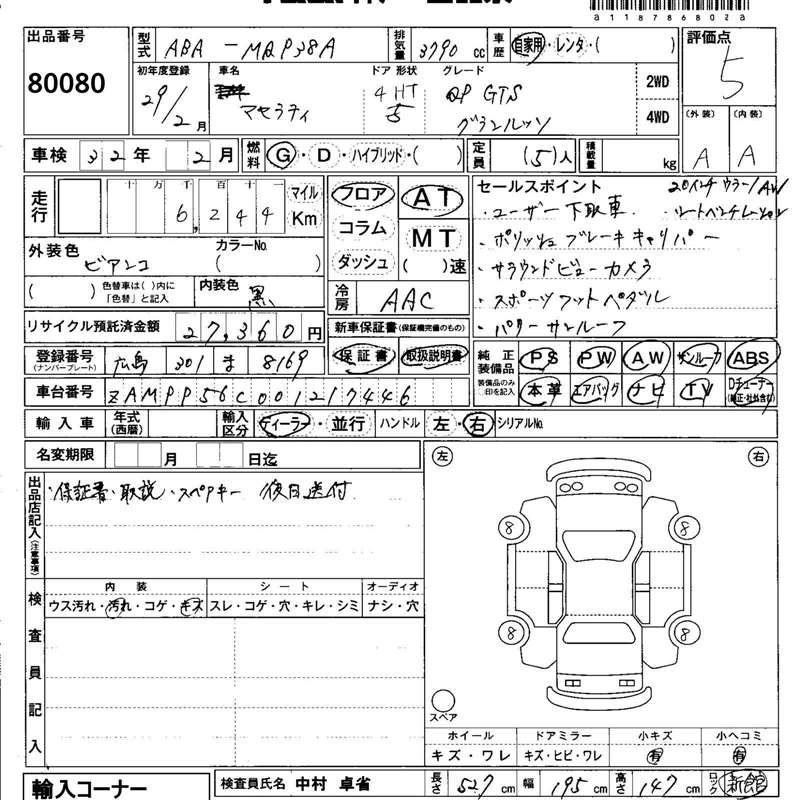 a118786802a
出品番号 80080
型式 ABA-MQP38A 排気量 3790 cc 車歴 自家用・レンタ・( )
評価点 5
初年度登録 29/2月 車名 マセラティ ドア 形状 4 HT 5 グレード QP GTS グランルッソ 2WD 4WD
(外装) A (内装) A
車検 32年 2月 燃料 G・D・ハイブリッド・( ) 定員 (5)人 積載量 kg
走行 十万千百十 6,244 マイル Km
フロア コラム ダッシュ
AT MT ( )速
セールスポイント 20インチ ウラーノAW
・ユーザー下取車 ・シートベンチレーション
・ポリッシュブレーキキャリパー
・サラウンドビューカメラ
・スポーツフットペダル
・パワーサンルーフ
外装色 ビアンコ カラーNo. ( )
( ) 色替車は( )内に「色替」と記入 内装色 黒
冷房 AAC
リサイクル預託済金額 27,360円
新車保証書(保証継続完備のもの)
保証書 取扱説明書
登録番号(ナンバープレート) 広島 301 ま 8169
純正装備品 PS PW AW サンルーフ ABS
装備品のみ○印を記入 本革 エアバッグ ナビ TV Dチューナー(純正・社外含む)
車台番号 ZAMPP56C001217446
輸入車 年式(西暦) 輸入区分 ディーラー・並行 ハンドル 左・右 シリアルNo.
名変期限 月 日迄
出品店記入(注意事項)
・保証書・取説・スペアキー 後日送付
左 右
8 8
8 8
スペア
検査員記入
内装 シート オーディオ
ウス汚れ・汚れ・コゲ・キズ スレ・コゲ・穴・キレ・シミ ナシ・穴
ホイール ドアミラー 小キズ 小ヘコミ
キズ・ワレ キズ・ヒビ・ワレ 有 有
輸入コーナー
検査員氏名 中村 卓省 長さ 527cm 幅 195cm 高さ 147cm ロック 新館